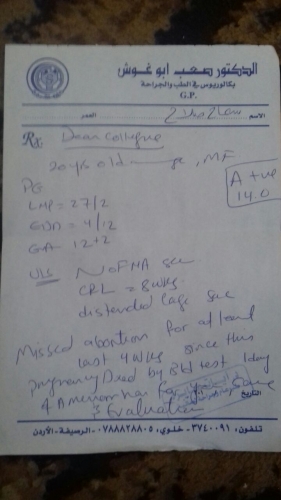 الدكتور صعب ابو غوش
بكالوريوس في الطب والجراحة
G.P.
الاسم
العمر
Rx Dear Colleague
20 yrs old
A +ve
14.0
PG
LMP = 27/2
EDD = 4/12
GA 12+2
U/S No FMA see
CRL = 8 wks
distended large sac
Missed abortion for at least
last 4 wks since this
pregnancy Dxed by Bld test 1 day
of Amenorrhea For your
& Evaluation
التاريخ
تلفون: ٣٧٤٠٠٩١ - خلوي: ٠٧٨٨٨٢٨٨٠٥ - الرصيفة - الأردن